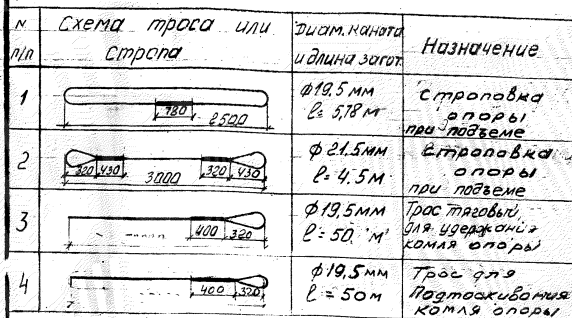 N п/п
Схема троса или стропа
Диам. каната и длина загот.
Назначение
1
780
2500
ф19.5 мм
ℓ= 5,78 м
строповка опоры при подъеме
2
320 430
3000
320 430
ф 21.5мм
ℓ= 4.5м
строповка опоры при подъеме
3
400 320
ф19,5мм
ℓ=50 м
Трос тяговый, для удержания комля опоры
4
400 320
ф19.5мм
ℓ = 50м
Трос для Подтаскивания комля опоры